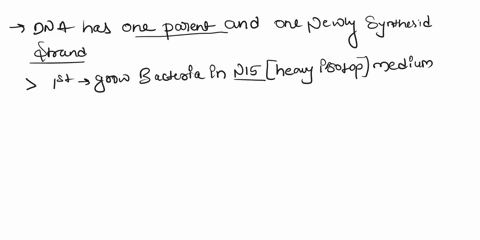 → DNA has one parent and one Newly Synthesid
Strand
> 1st → grow Bacteria in N15 [heavy isotop] medium